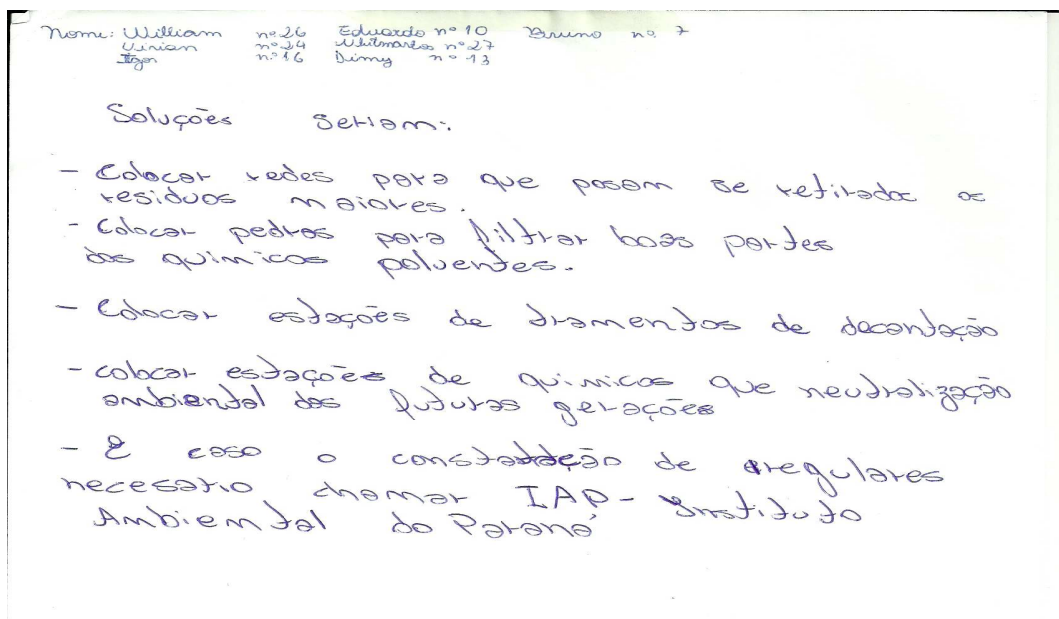 Nome: William nº 26 Eduardo nº 10 Bruno nº 7
Vivian nº 24 Whitmarlos nº 27
Igor nº 16 Dimy nº 13
Soluções seriam:
- Colocar redes para que posam se retirados os
residuos maiores.
- Colocar pedras para filtrar boas partes
dos quimicos poluentes.
- Colocar estações de tramentos de decantação
- colocar estações de quimicos que neutralização
ambiental das futuras gerações
- E caso o constatação de irregulares
necesario chamar IAP - Instituto
Ambiemtal do Paraná